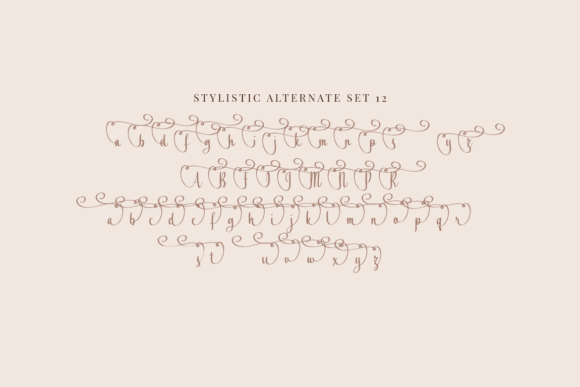 STYLISTIC ALTERNATE SET 12
a b d f g h i j k m n p s y z
A B F I J M N P R
a b c d e f g h i j k l m n o p q r
s t u v w x y z